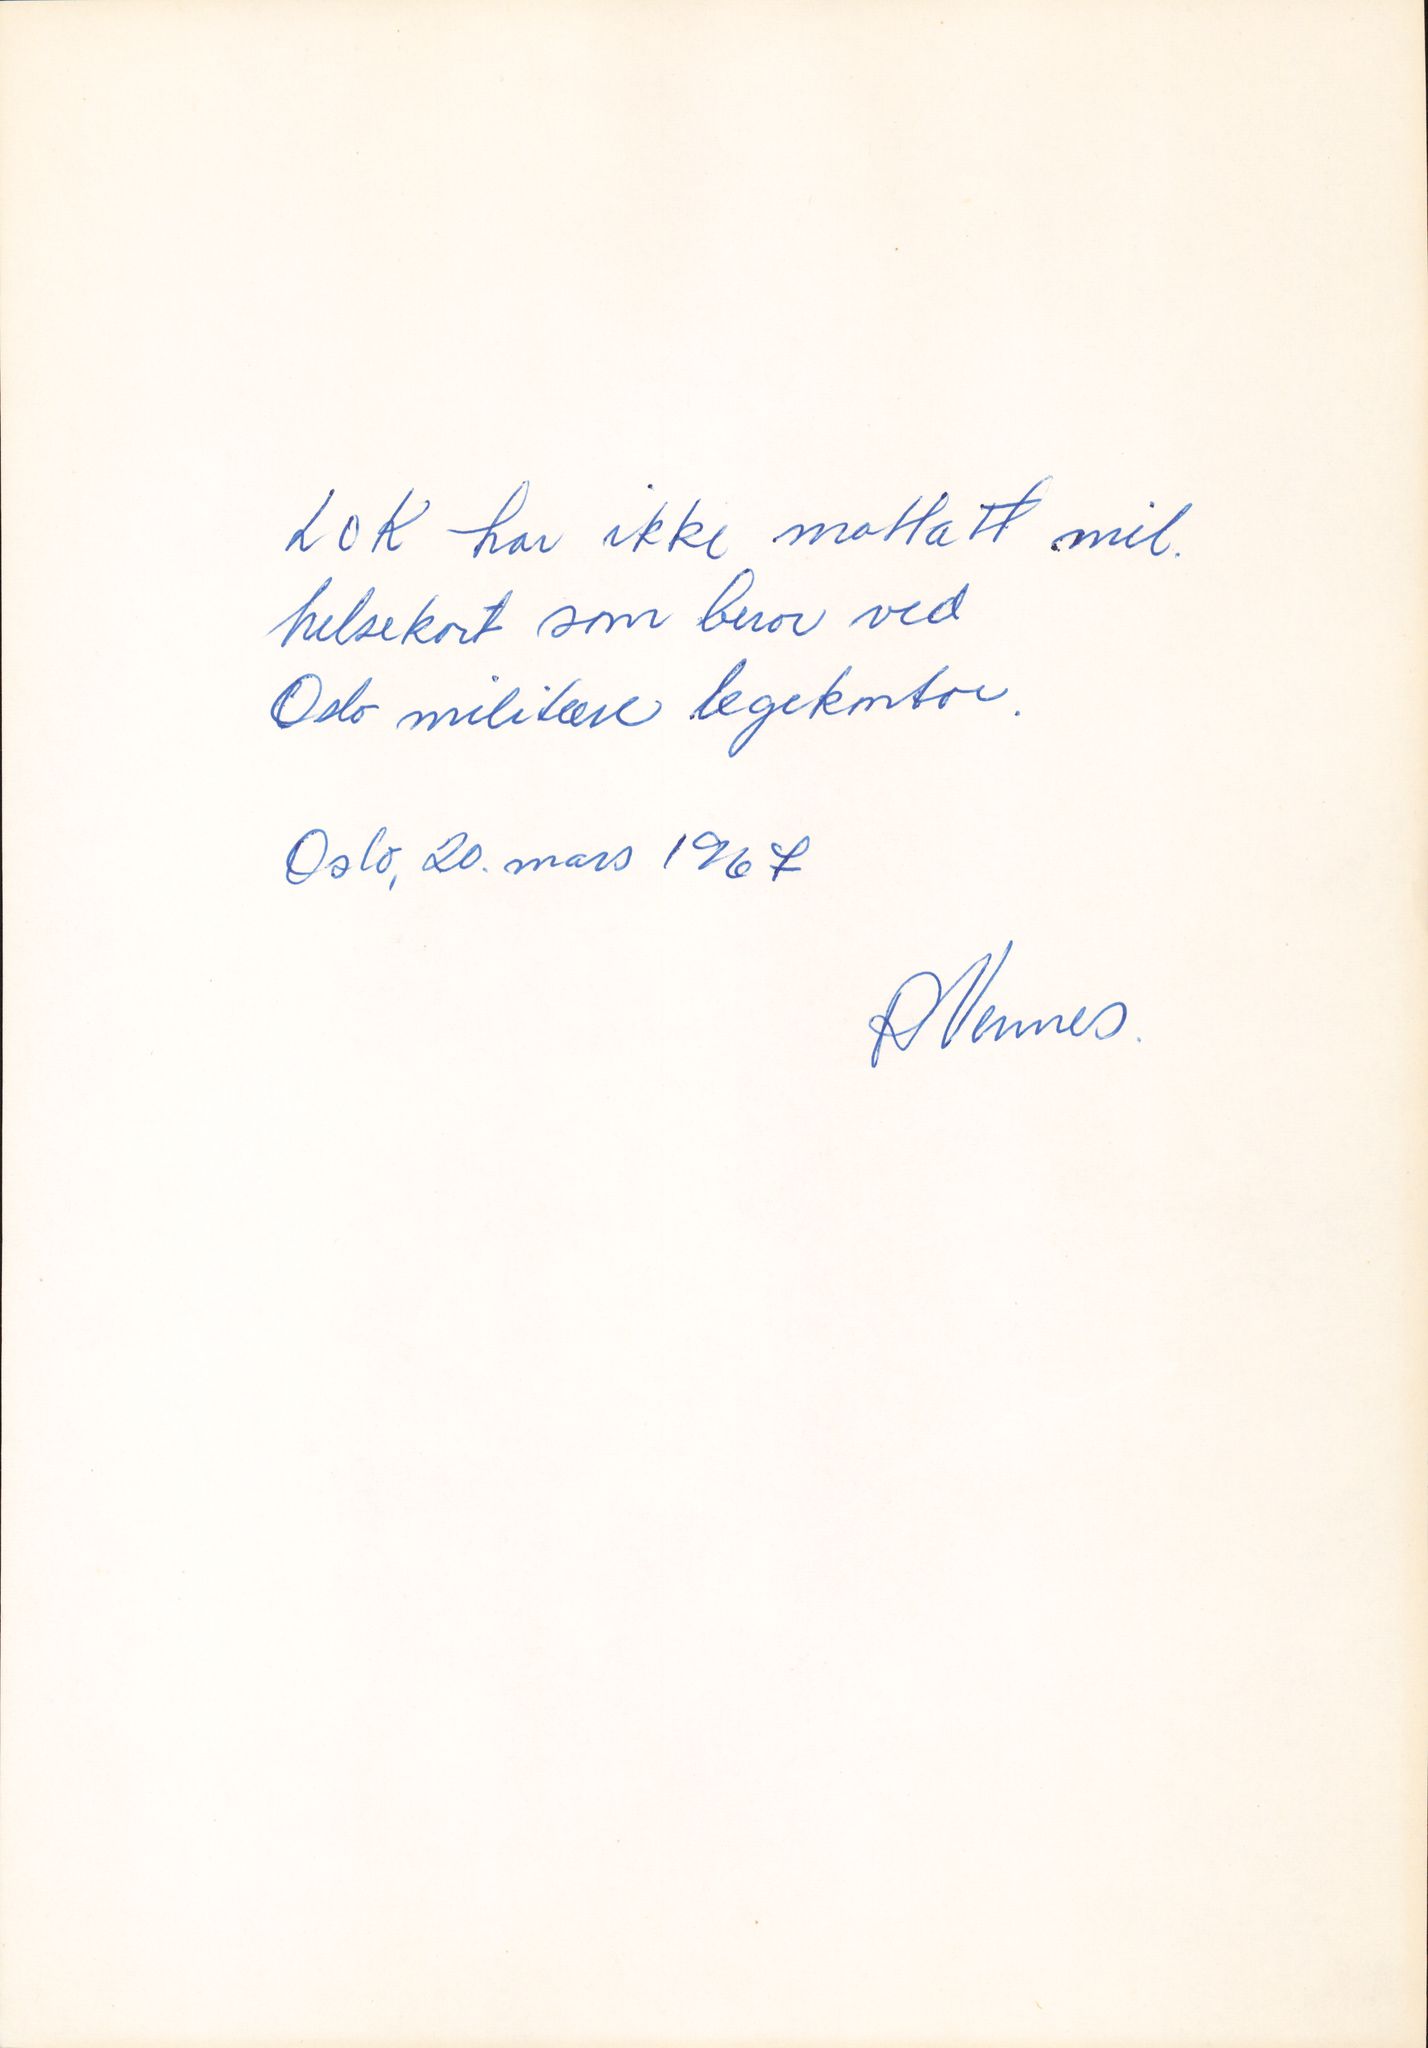 LOK har ikke mottatt mil.
helsekort som beror ved
Oslo militære legekontor.
Oslo, 20. mars 1967
R Vennes.